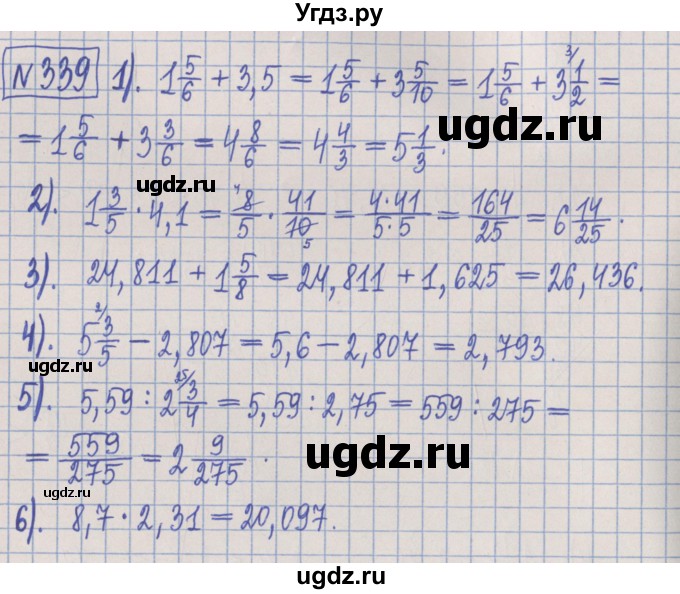 Угдз.ру
№339 1). 1 5/6 + 3,5 = 1 5/6 + 3 5/10 = 1 5/6 + 3 1/2 3/ =
= 1 5/6 + 3 3/6 = 4 8/6 = 4 4/3 = 5 1/3.
ugdz.ru
ugdz.ru
2). 1 3/5 · 4,1 = 8/5 4 · 41/10 5 = 4·41/5·5 = 164/25 = 6 14/25.
3). 24,811 + 1 5/8 = 24,811 + 1,625 = 26,436.
ugdz.ru
4). 5 3/5 2/ − 2,807 = 5,6 − 2,807 = 2,793.
ugdz.ru
5). 5,59 : 2 3/4 25/ = 5,59 : 2,75 = 559 : 275 =
= 559/275 = 2 9/275.
ugdz.ru
ugdz.ru
6). 8,7 · 2,31 = 20,097.
ugdz.ru